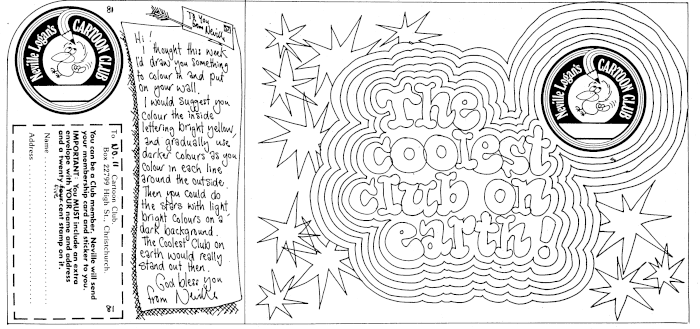 18
Neville Logan's
CARTOON CLUB
To No. 11 Cartoon Club,
Box 22799 High St., Christchurch.
You can be a Club member, Neville will send
your membership card and sticker to you.
IMPORTANT: You MUST include an extra
envelope with YOUR name and address
and a twenty four cent stamp on it.
five
Name
Address
18
To You
from Neville
Hi!
I thought this week
I'd draw you something
to colour in and put
on your wall.
I would suggest you
colour the inside
lettering bright yellow,
and gradually use
darker colours as you
colour in each line
around the outside.
Then you could do
the stars with light
bright colours on a
dark background.
The Coolest Club on
earth would really
stand out then.
God bless you
from Neville
The
coolest
club on
earth!
Neville Logan's
CARTOON CLUB